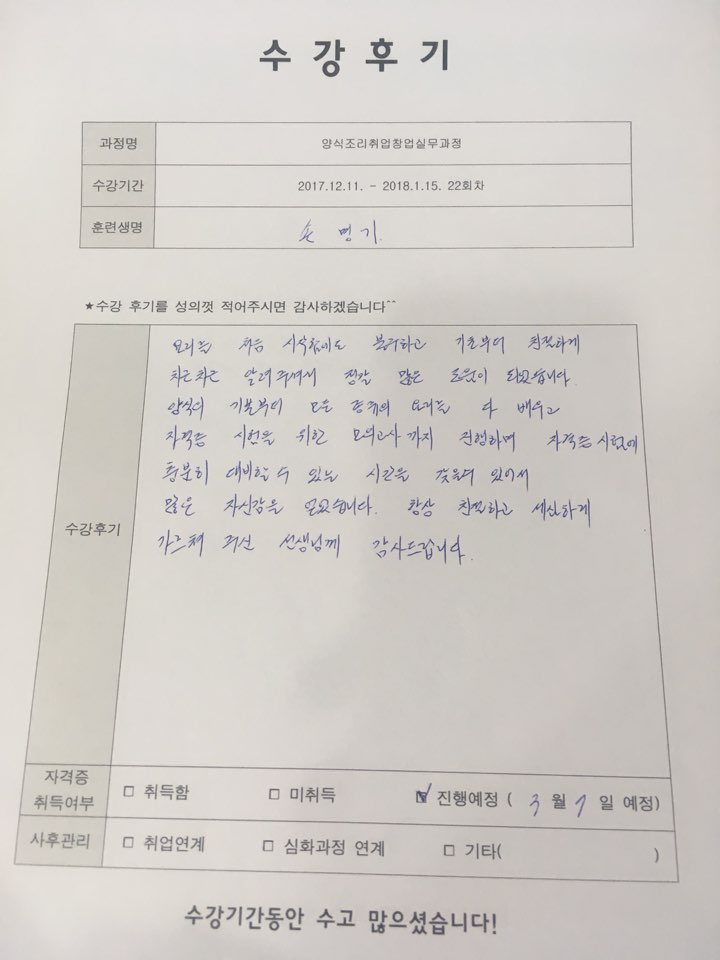 수강후기
과정명 양식조리취업창업실무과정
수강기간 2017.12.11. - 2018.1.15. 22회차
훈련생명 손 명 기
★수강 후기를 성의껏 적어주시면 감사하겠습니다^^
수강후기
요리를 처음 시작함에도 불구하고 기초부터 친절하게
차근차근 알려주셔서 정말 많은 도움이 되었습니다.
양식의 기본부터 모든 종류의 요리를 다 배우고
자격증 시험을 위한 모의고사까지 진행하며 자격증 시험에
충분히 대비할 수 있는 시간을 갖을 수 있어서
많은 자신감을 얻었습니다. 항상 친절하고 세심하게
가르쳐 주신 선생님께 감사드립니다.
자격증 취득여부 □ 취득함 □ 미취득 ☑ 진행예정 ( 3 월 7 일 예정)
사후관리 □ 취업연계 □ 심화과정 연계 □ 기타( )
수강기간동안 수고 많으셨습니다!